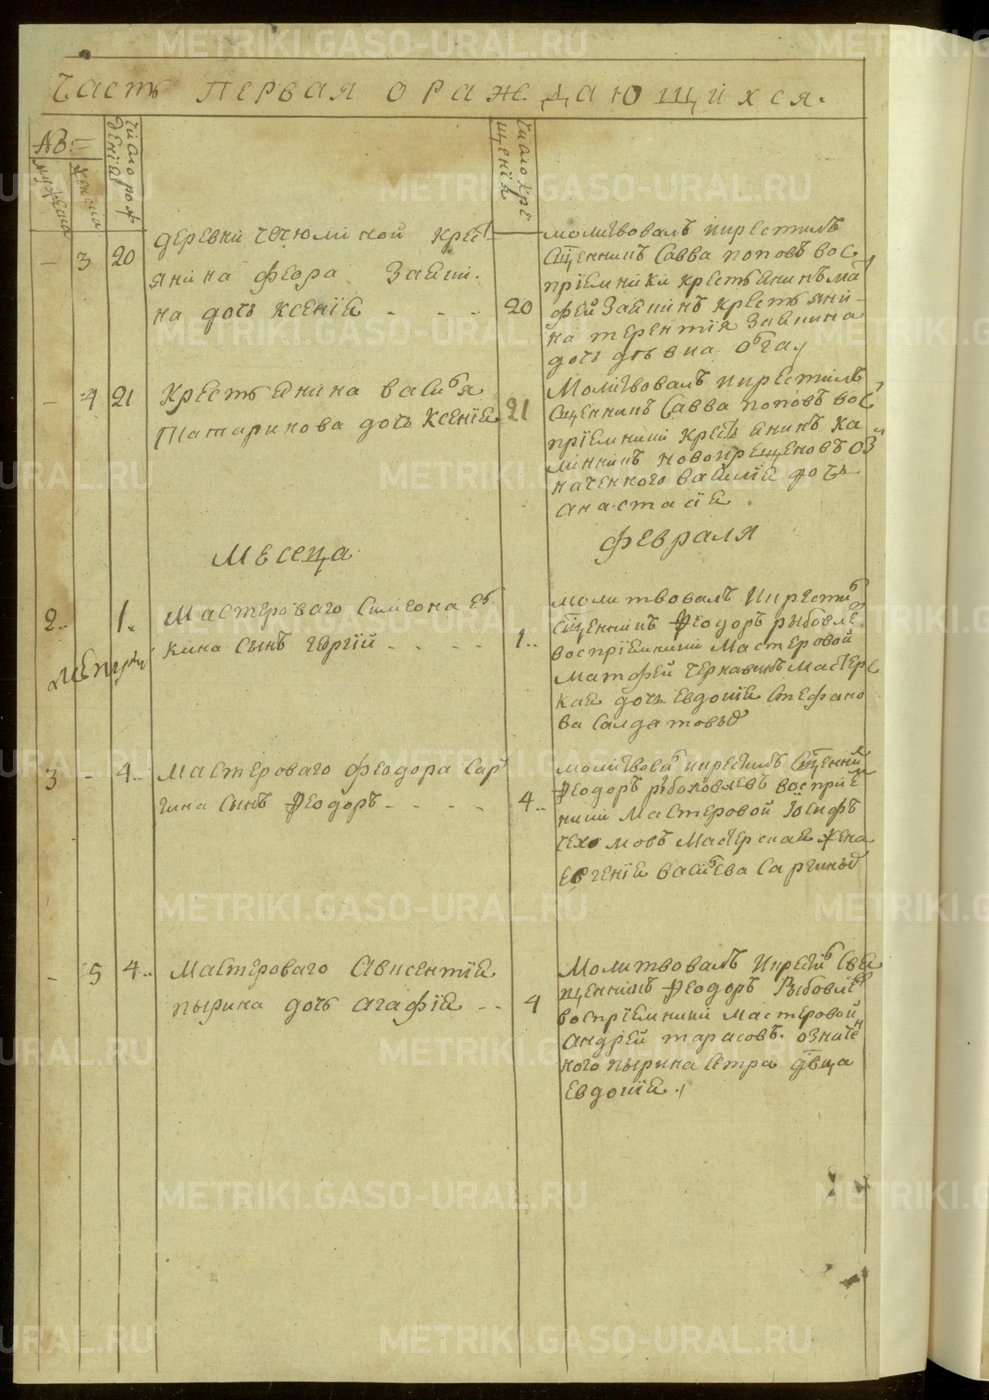 Часть Первая о раждающихся.
мужеска
женска
число рож
денїѧ
число кре
щенїѧ
3 20
деревни
янина Феора Заѣки
на дочь Ксенїѧ
20
молитвовалъ икрестилъ
Сщенникъ Савва поповъ вос
прїемники крестьянинъ ма
фей Заикинъ крестьяни
на терентїя Заикина
дочь девка
4 21
Крестьѧнина васи҃ья
Татаринова дочь Ксенїѧ
21
Молитвовалъ икрестилъ
Сщенникъ Савва поповъ вос
прїемники крестьѧнинъ ка
линникъ новокрещеновъ оз
наченного василїѧ дочь
анастасїѧ
Месеца
февраля
2.. 1.
Мастероваго Симеона
кина сынъ гергїй
1..
молитвовалъ Икрести
Сщенникъ Феодоръ рыбовле
воспрїемники Мастеровой
Матфей Чернавинъ Мастерс
каѧ дочь Евдокїѧ Стефано
ва Салдатовыд
3 4..
Мастероваго феодора Сар
гина сынъ Феодоръ
4..
молитвова икрестилъ Сщенни
Феодоръ рыболовлевъ воспрїе
ники Мастеровой Їосифъ
Мастерскаѧ жена
Евгенїѧ васильева Саргиныд
5 4..
Мастероваго Авксентїѧ
пырина дочь агафїѧ
4
Молитвовалъ Икрести Свѧ
щенникъ Феодоръ Рыбовле
воспрїемники мастеровой
андрей тарасовъ. означе
ного пырина Сѣтра двца
Евдокїѧ
METRIKI.GASO-URAL.RU